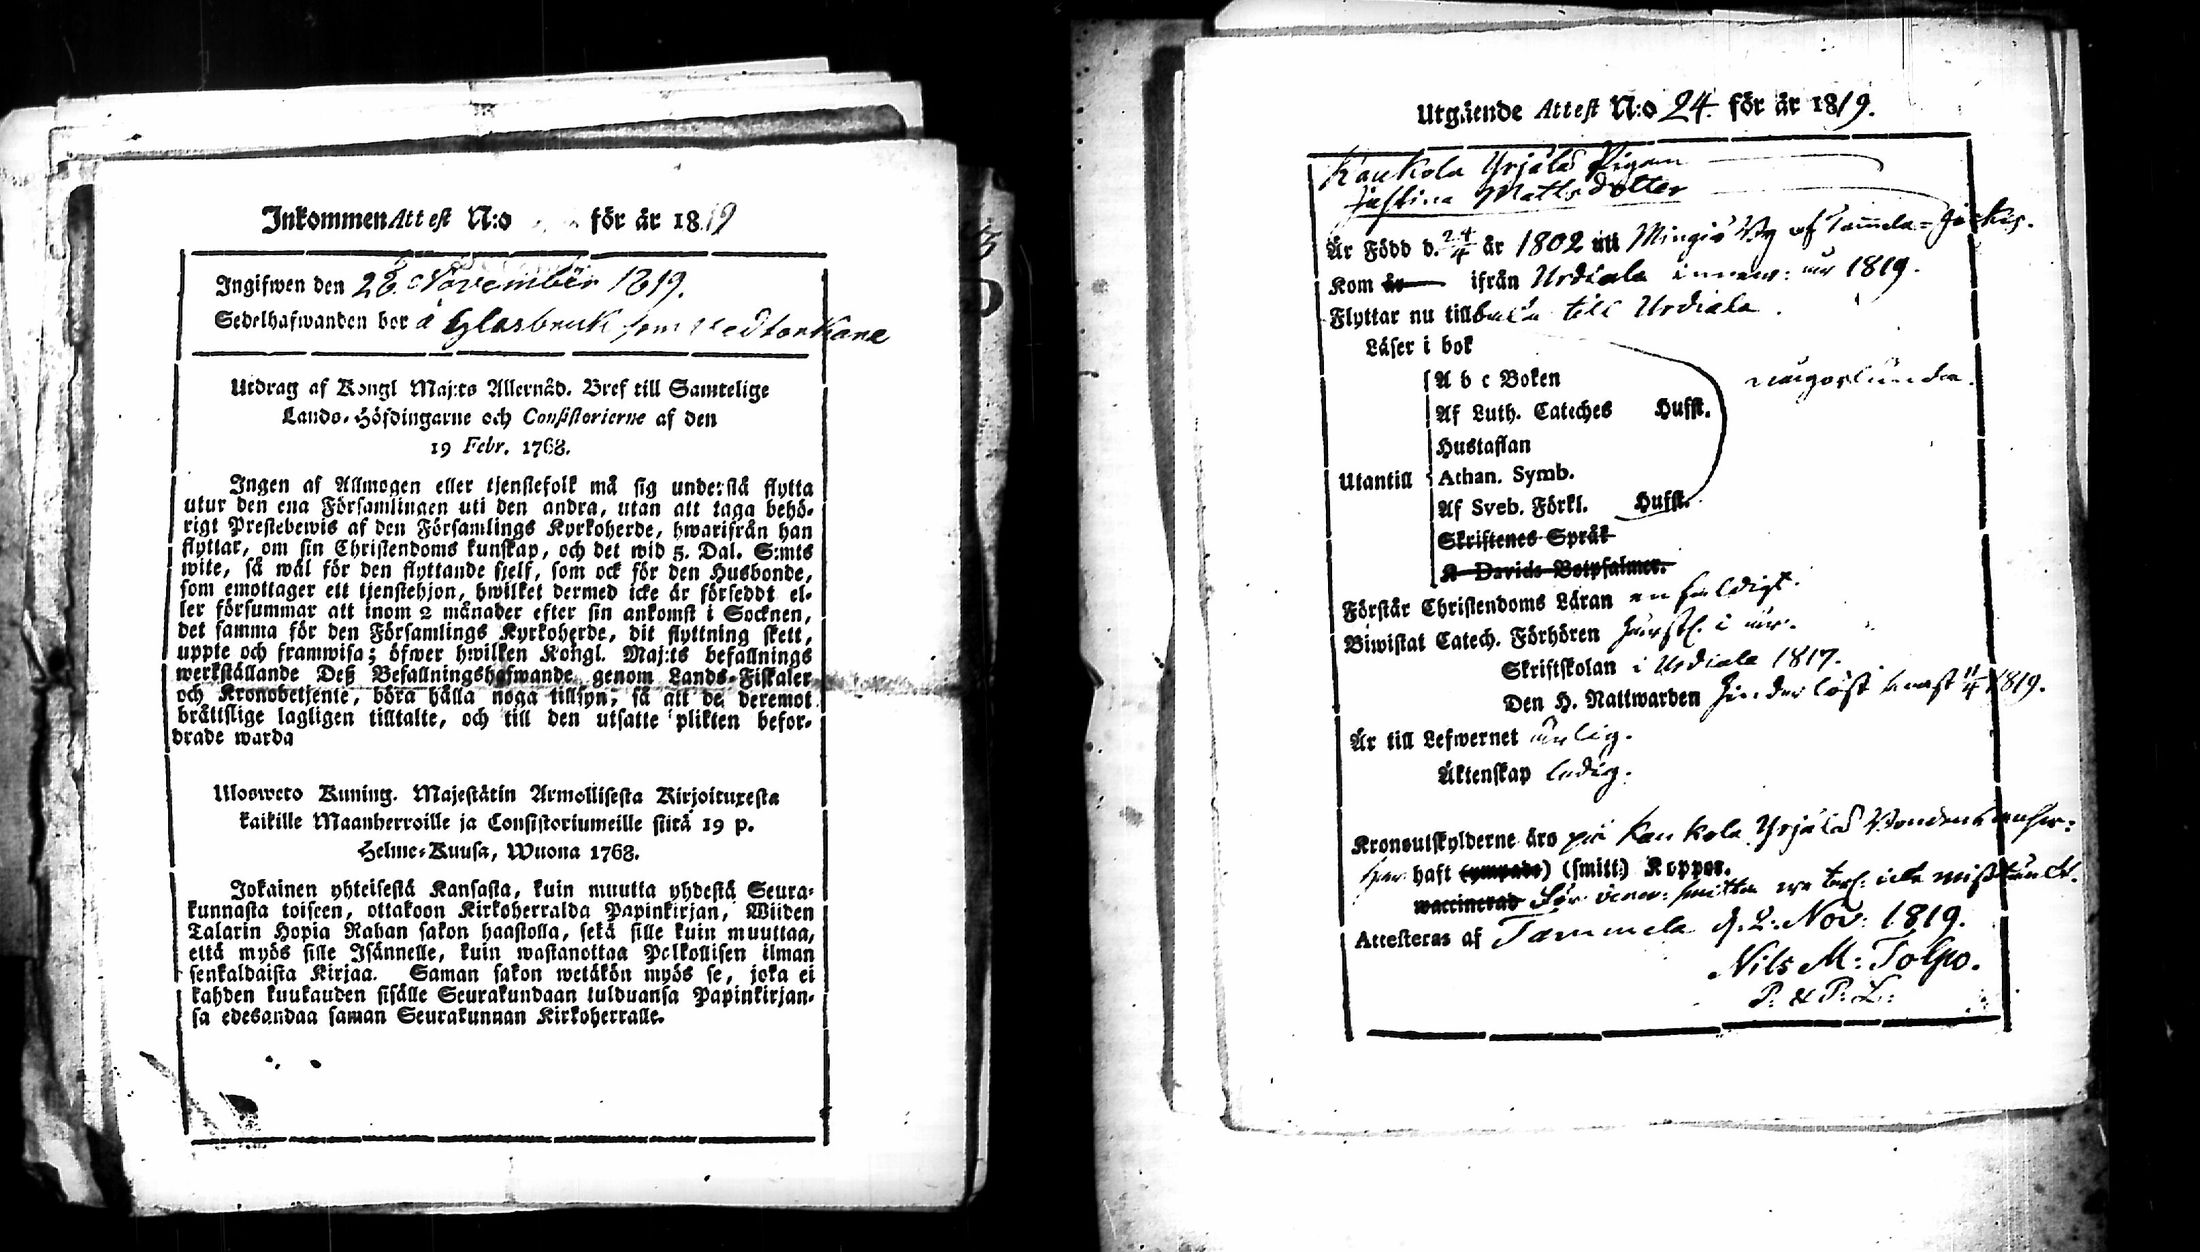 Inkommen Attest N:o för år 1819
Ingifwen den 28 November 1819.
Sedelhafwanden bor å Glasbruk som vedtorkare
Utdrag af Kongl Maj:ts Allernåd. Bref till Samtelige
Lands-Höfdingarne och Consistorierne af den
19 Febr. 1768.
Ingen af Allmogen eller tjenstefolk må sig understå flytta
utur den ena Församlingen uti den andra, utan att taga behö-
rigt Prestebewis af den Församlings Kyrkoherde, hwarifrån han
flyttar, om sin Christendoms kunskap, och det wid 5. Dal. S:mts
wite, så wäl för den flyttande sjelf, som ock för den Husbonde,
som emottager ett tjenstehjon, hwilket dermed icke är förseddt el-
ler försummar att inom 2 månader efter sin ankomst i Socknen,
det samma för den Församlings Kyrkoherde, dit flyttning skett,
uppte och framwisa; öfwer hwilken Kongl. Maj:ts befallnings
werkställande Deß Befallningshafwande genom Lands-Fiskaler
och Kronobetjente, böra hålla noga tillsyn, så att de deremot
bråttslige lagligen tilltalte, och till den utsatte plikten befor-
drade warda
Ulosweto Kuning. Majestätin Armollisesta Kirjoituxesta
kaikille Maanherroille ja Consistoriumeille siitä 19 p.
Helme-Kuusa, Wuona 1768.
Jokainen yhteisestä Kansasta, kuin muutta yhdestä Seura-
kunnasta toiseen, ottakoon Kirkoherralda Papinkirjan, Wiiden
Talarin Hopia Rahan sakon haastolla, sekä sille kuin muuttaa,
että myös sille Isännelle, kuin wastanottaa Palkollisen ilman
senkaldaista Kirjaa. Saman sakon wetäkön myös se, joka ei
kahden kuukauden sisälle Seurakundaan tulduansa Papinkirjan-
sa edesandaa saman Seurakunnan Kirkoherralle.
Utgående Attest N:o 24. för år 1819.
Kaukola Yrjälä Pigan
Justina Mattsdotter
Är Född d. 24/4 år 1802 uti Mingiö By af Tammela=Jockis.
Kom år ifrån Urdiala innew: år 1819.
Flyttar nu tillbaka till Urdiala.
Läser i bok
A b c Boken någorlunda.
Af Luth. Cateches Hufst.
Hustaflan
Utantill Athan. Symb.
Af Sveb. Förkl. Hufst.
Skriftenes Språk
K Davids Botpsalmer.
Förstår Christendoms Läran enfaldigt.
Biwistat Catech. Förhören i år.
Skriftskolan i Urdiala 1817.
Den H. Nattwarden Hinderlöst 11/4 1819.
Är till Lefwernet ärlig.
Äktenskap ledig.
Kronoutskylderne äro på Kaukola Yrjälä
haft (ympade) (smitt.) Koppor.
waccinerad För vener: smitta
Attesteras af Tammela d. 2. Nov: 1819.
Nils M: Tolpo.
P. & P. L: